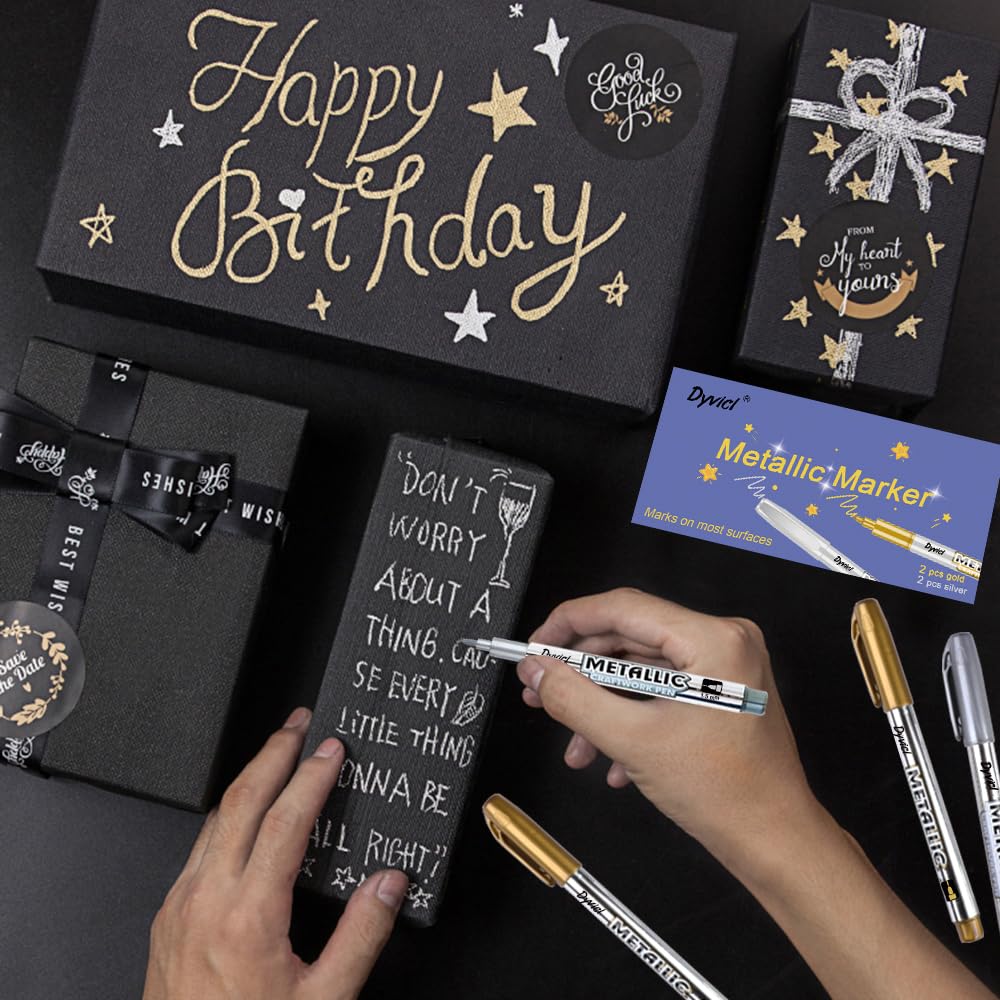 Happy
Birthday
Good
Luck
FROM
My heart
TO
yours
Dyvicl ®
Metallic Marker
Marks on most surfaces
Dyvicl
2 pcs gold
2 pcs silver
BEST WIS
ISHES
WISH
Save
the Date
"DON'T
WORRY
ABOUT A
THING. CAU-
SE EVERY
LITTLE THING
ONNA BE
ALL RIGHT"
METALLIC
CRAFTWORK PEN
1.5 mm
Dyvicl
METALLIC
Dyvicl
METALLIC